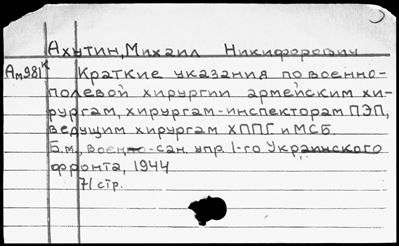 Ахутин, Михаил Никифорович
Ам981к Краткие указания по военно-
полевой хирургии армейским хи-
рургам, хирургам-инспекторам ПЭП,
ведущим хирургам ХППГ и МСБ.
Б.м., военно-сан. упр. 1-го Украинского
фронта, 1944
71 стр.